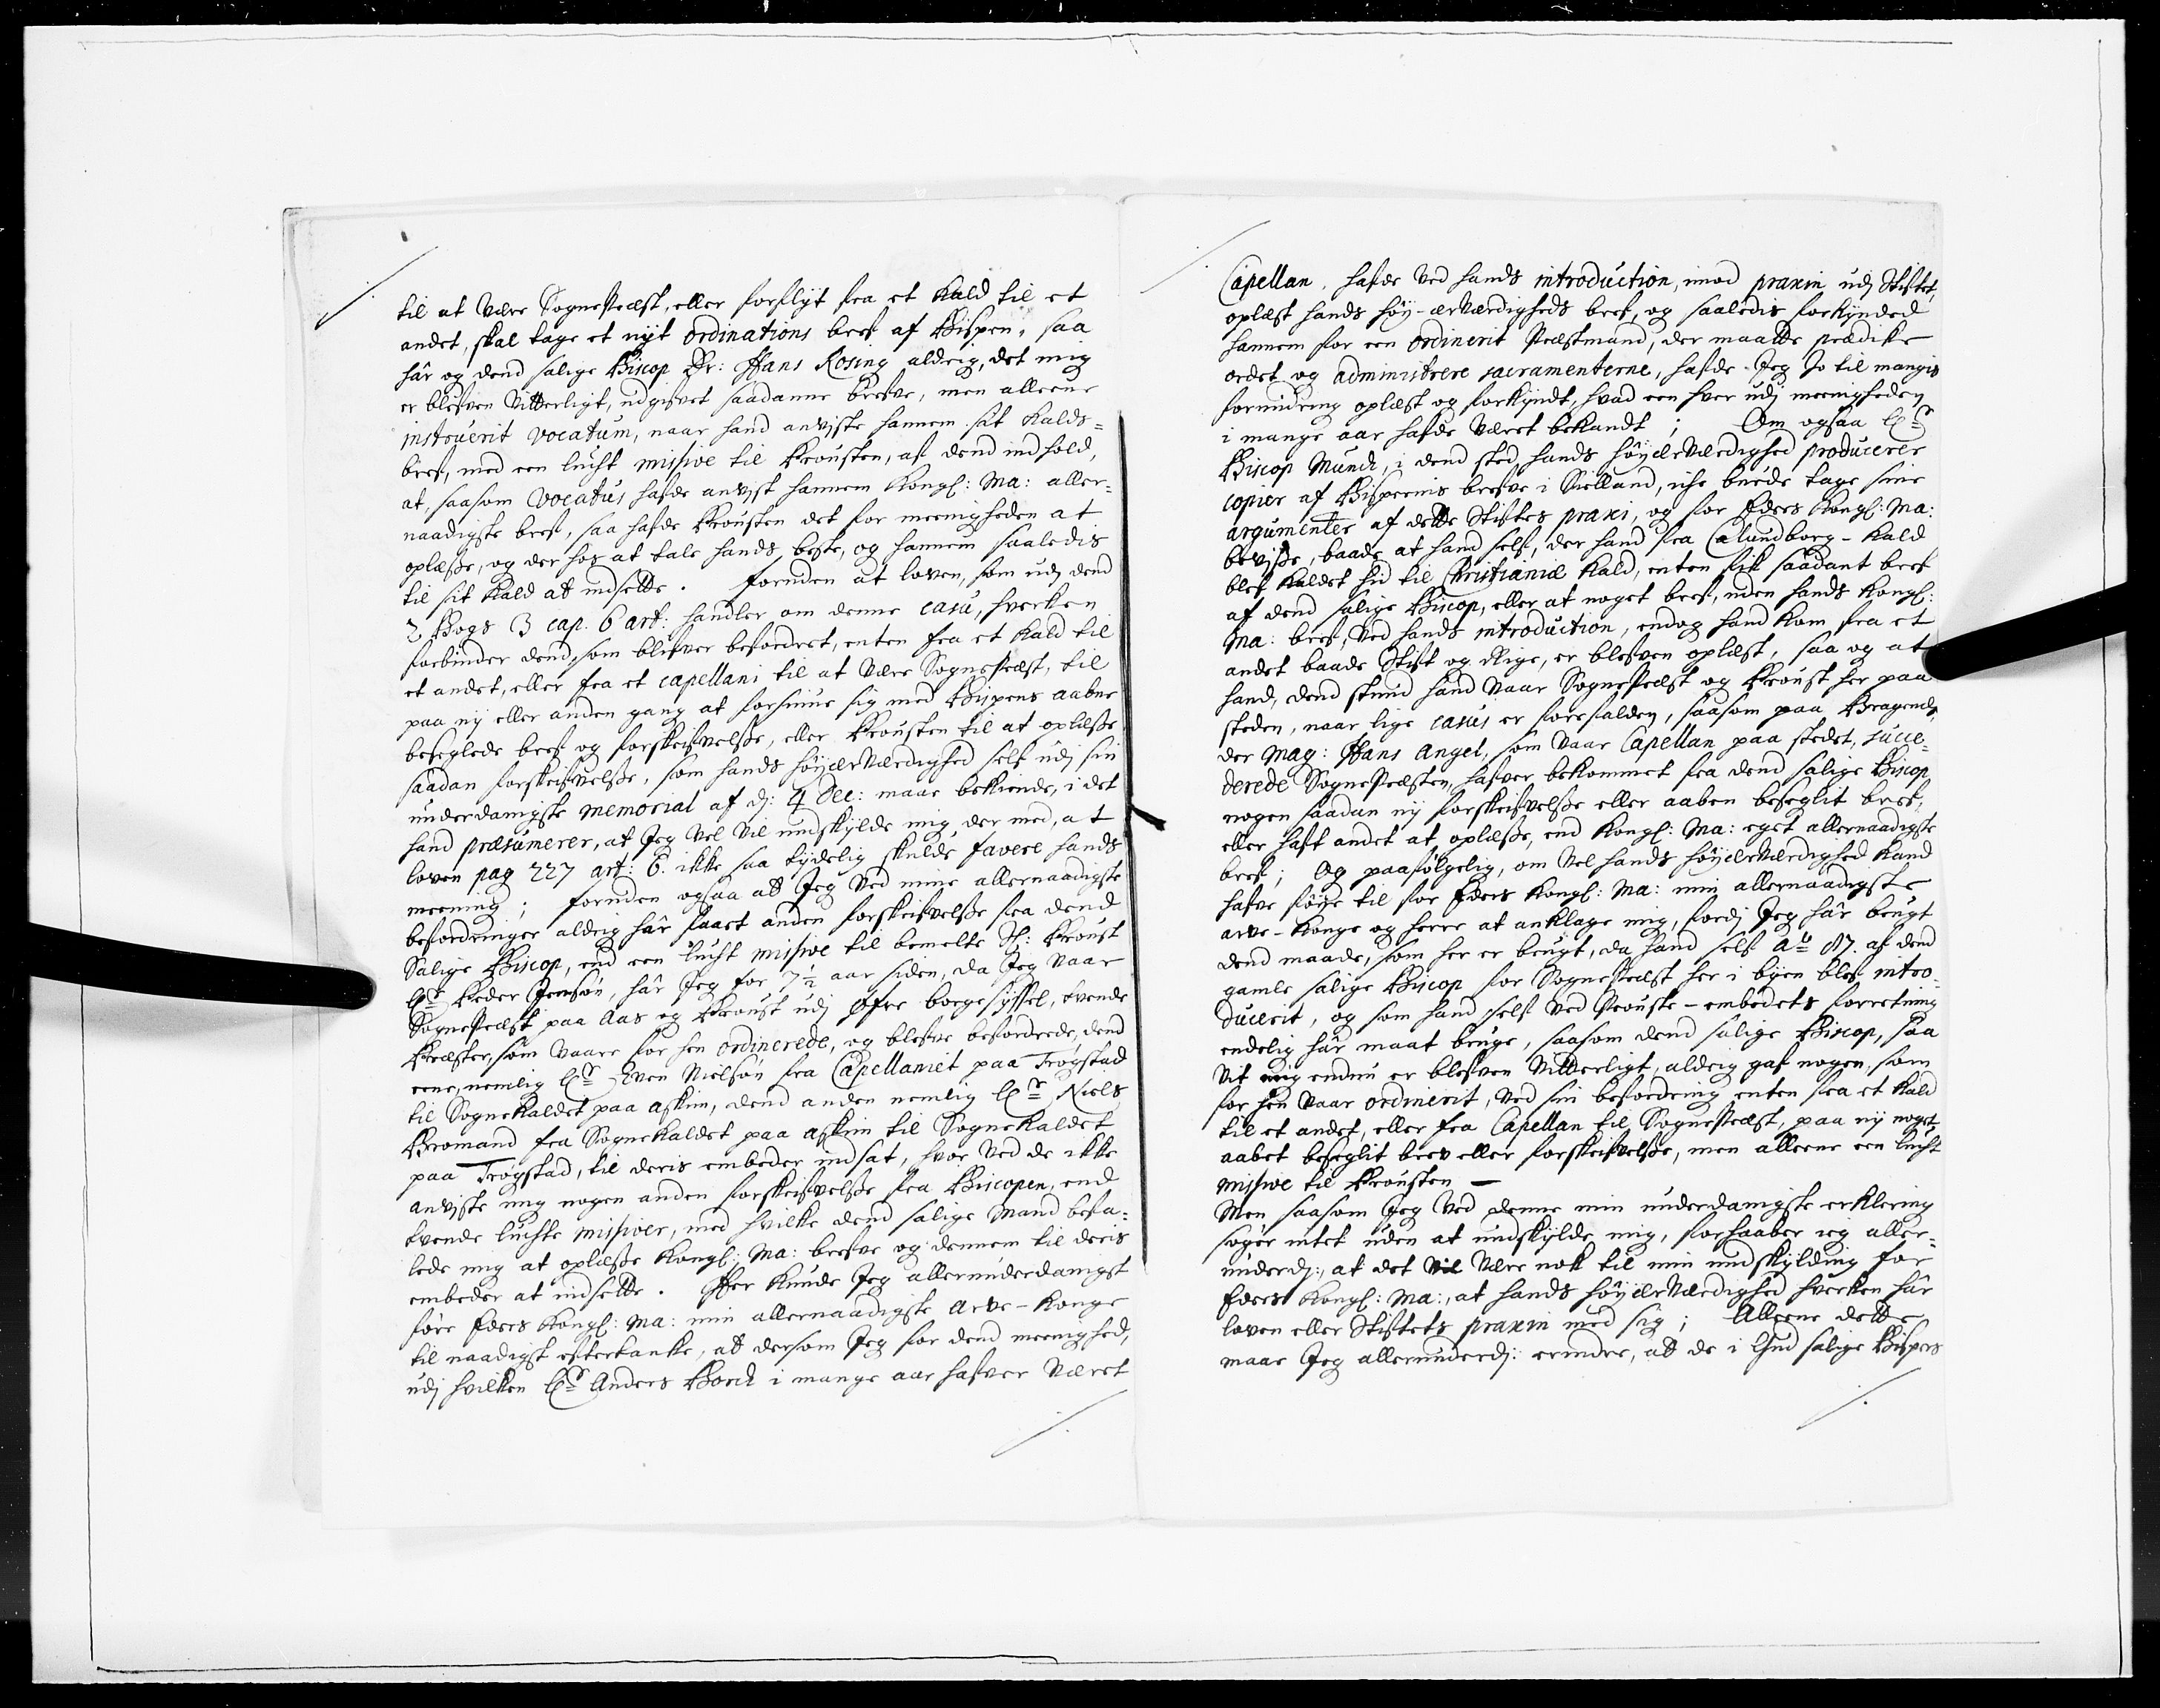 til at være SognePræst, eller forflyt fra et Kald til et
andet, skal tage et nyt ordinations bref af Bispen, saa
hâr og dend salige Biscop Dr: Hans Rosing aldrig, det mig
er blefven vitterligt, udgifvet saadanne brefve, men alleene
instruerit vocatum, naar hand anviste hannem sit Kalds-
bref, med een lucht missive til Prousten, af dend indhold,
at, saasom vocatus hafde anvist hannem Kongl: Ma: aller-
naadigste bref, saa hafde Prousten det for meenigheden at
oplæsse, og der hos at tale hands beste, og hannem saaledis
til sit Kald at indsette. foruden at loven, som udj dend
2 Bogs 3 cap. 6 art: handler om denne casu, hverken
forbinder dend, som blifver befordret, enten fra et Kald til
et andet, eller fra et capellani til at være SognePræst, til
paa ny eller anden gang at forsiune sig med Bispens aabne
beseglede bref og forskrifvelsse, eller Prousten til at oplæsse
saadan forskrifvelsse, som hands höyærværdighed self udj sin
underdanigste memorial af dj: 4 Dec: maae bekiende, i det
hand præsumerer, at Jeg vel vil undskylde mig der med, at
loven pag 227 art: 6. ikke saa tydelig skulde favere hands
meening; foruden ogsaa at Jeg ved mine allernaadigste
befordringer aldrig hâr faaet anden forskrifvelsse fra dend
Salige Biscop, end een lucht missive til bemelte Sl: Proust
Hr Peder Jensøn, hâr Jeg for 7½ aar siden, da Jeg vaar
SognePræst paa Aas og Proust udj Øfre borgesyssel, tvende
Præster, som vaare for hen ordinerede, og blefve befordrede, dend
eene, nemlig Hr Even Nielsøn fra Capellaniet paa Trøgstad
til SogneKaldet paa askim, dend anden nemlig Hr Niels
Bromand fra SogneKaldet paa askim til SogneKaldet
paa Trøgstad, til deris embeder indsat, hvor ved de ikke
anviste mig nogen anden forskrifvelsse fra Biscopen, end
tvende luchte missiver, med hvilke dend salige Mand befa-
lede mig at oplæsse Kongl: Ma: brefve og dennem til deris
embeder at indsette. Her kunde Jeg allerunderdanigst
føre Eders Kongl: Ma: min allernaadigste Arve-Konge
til naadigst eftertanke, at dersom Jeg for dend meenighed,
udj hvilken Hr Anders Borch i mange aar hafver været
Capellan, hafde ved hands introduction, imod praxin udj Stiftet,
oplæst hands höy-ærværdigheds bref, og saaledis forkynded
hannem for een ordinerit Præstmand, der maatte prædike
ordet og administrere sacramenterne, hafde Jeg Jo til mangis
forundring oplæst og forkyndt, hvad een hver udj meenigheden
i mange aar hafde været bekandt; Om ogsaa Hr
Biscop Munch, i dend sted hands höyærværdighed producerer
copier af Bispernis brefve i Sielland, iche burde tage sine
argumenter af dette Stiftes praxi, og for Eders Kongl: Ma:
bevisse, baade at hand self, der hand fra Calundborg-Kald
blef kaldet hid til Christianiæ Kald, enten fik saadant bref
af dend salige Biscop, eller at noget bref, uden hands Kongl:
Ma: bref, ved hands introduction, endog hand kom fra et
andet baade Stift og Rige, er blefven oplæst, saa og at
hand, dend stund hand vaar SognePræst og Proust her paa
steden, naar lige casus er forefalden, saasom paa Bragenes,
der Mag: Hans Angel, som vaar Capellan paa stedet, succe-
derede SognePræsten, hafver bekommet fra dend salige Biscop
nogen saadan ny forskrifvelsse eller aaben beseglit bref,
eller haft andet at oplæsse, end Kongl: Ma: eget allernaadigste
bref; Og paafølgelig, om vel hands höyærværdighed kand
hafve föye til for Eders Kongl: Ma: min allernaadigste
arve-Konge og herre at anklage mig, fordj Jeg hâr brugt
dend maade, som her er brugt, da hand self Ao 87. af dend
gamle salige Biscop for SognePræst her i byen blef intro-
ducerit, og som hand self ved Prouste-embedets forretning
endelig hâr maat bruge, saasom dend salige Biscop, saa
vit mig endnu er blefven vitterligt, aldrig gaf nogen, som
for hen vaar ordinerit, ved sin befordring enten fra et Kald
til et andet, eller fra Capellan til SognePræst, paa ny noget
aabet beseglit brev eller forskrifvelsse, men alleene een lucht
missive til Prousten —
Men saasom Jeg ved denne min underdanigste erklering
søger intet uden at undskylde mig, forhaaber ieg aller-
underdj:, at det vil være nok til min undskylding for
Eders Kongl: Ma:, at hands höyærværdighed hverken hâr
loven eller Stiftets praxin med sig; Alleene dette
maae Jeg allerunderdj: erindre, at de i Gud salige Bispers